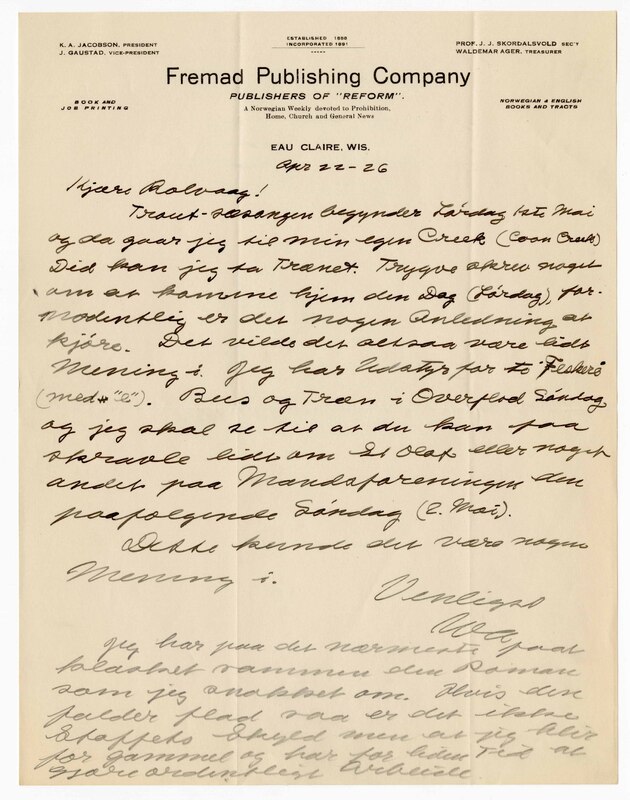 K. A. JACOBSON, PRESIDENT
J. GAUSTAD, VICE-PRESIDENT
ESTABLISHED 1888
INCORPORATED 1891
PROF. J. J. SKORDALSVOLD SEC'Y
WALDEMAR AGER, TREASURER
Fremad Publishing Company
PUBLISHERS OF "REFORM".
BOOK AND
JOB PRINTING
A Norwegian Weekly devoted to Prohibition,
Home, Church and General News
NORWEGIAN & ENGLISH
BOOKS AND TRACTS
EAU CLAIRE, WIS.
Apr 22-26
Kjære Rolvaag!
Trout-sæsongen begynder Lørdag 1ste Mai
og da gaar jeg til min egen Creek (Coon Creek)
Did kan jeg ta Trænet. Trygve skrev noget
om at komme hjem den Dag (Lørdag), for-
modentlig er det nogen Anledning at
kjøre. Det vilde det altsaa være lidt
Mening i. Jeg har Udstyr for to Feskere
(med "e"). Bus og Træn i Overflod Søndag
og jeg skal se til at du kan faa
skravle lidt om St Olaf eller noget
andet paa Mandsforeningen den
paafølgende Søndag (2. Mai).
Dette kunde det være nogen
Mening i.
Venligst
WA
Jeg har paa det nærmeste faat
klasket sammen den Roman
som jeg snakket om. Hvis den
falder flad saa er det ikke
Stoffets Skyld men at jeg blir
for gammel og har for liden Tid at
gjøre ordentligt Arbeide